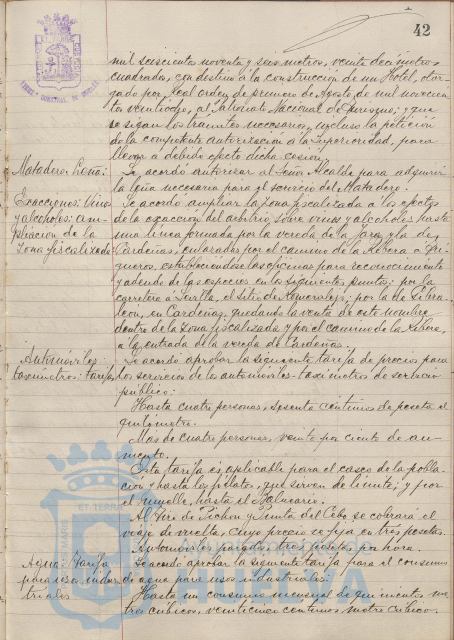 42
mil seiscientos noventa y seis metros, veinte decímetros
cuadrados, con destino á la construcción de un Hotel, otor-
gado por Real orden de primero de Agosto de mil novecien-
tos veintiocho, al Patronato Nacional de Turismo; y que
se sigan los trámites necesarios, incluso la petición
de la competente autorización á la Superioridad, para
llevar á debido efecto dicha cesión.
Matadero: Leña:
Se acordó autorizar al Señor Alcalde para adquirir
la leña necesaria para el servicio del Matadero.
Exacciones: Vinos
y alcoholes: am-
pliación de la
zona fiscalizada:
Se acordó ampliar la zona fiscalizada á los efectos
de la exacción del arbitrio sobre vinos y alcoholes hasta
una línea formada por la vereda de la Jara y la de
Cardeñas, enlazadas por el camino de la Ribera á Tri-
gueros, estableciéndose las oficinas para reconocimiento
y adeudo de las especies en los siguientes puntos: por la
carretera á Sevilla, el sitio de
por la de Gibra-
león, en Cardeñas, quedando la venta de este nombre
dentro de la zona fiscalizada y por el camino de la Ribera,
á la entrada de la vereda de Cardeñas.
Automóviles:
taxímetros: tarifa:
Se acordó aprobar la siguiente tarifa de precios para
los servicios de los automóviles-taxímetros de servicio
público:
Hasta cuatro personas, sesenta céntimos de peseta el
quilómetro.
Más de cuatro personas, veinte por ciento de au-
mento.
Esta tarifa es aplicable para el casco de la pobla-
ción y hasta los pilotes, que sirven de límite; y por
el Muelle, hasta el Balneario.
Al Tiro de Pichón y Punta del Cebo se cobrará el
viaje de vuelta, cuyo precio se fija en tres pesetas.
Automóviles parados, tres pesetas por hora.
Agua: Tarifa
para usos indus-
triales:
Se acordó aprobar la siguiente tarifa para el consumo
de agua para usos industriales:
Hasta un consumo mensual de quinientos me-
tros cúbicos, veinticinco céntimos metro cúbico.